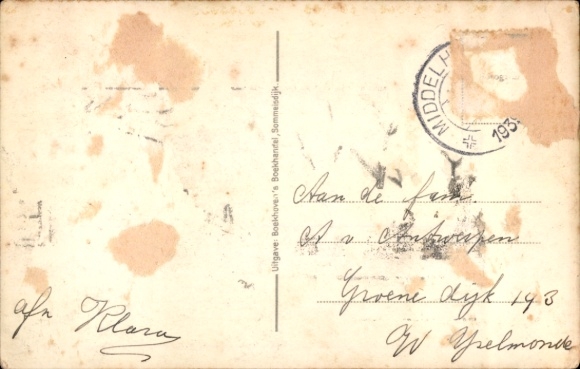 MIDDELH
193
Uitgave: Boekhoven's Boekhandel, Sommelsdijk.
Aan de fam.
A v. Antwerpen
Groene dijk 193
W Yselmonde
afn Klara